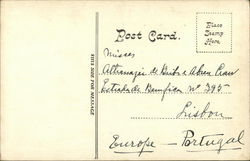 Post Card.
Place
Stamp
Here.
THIS SIDE FOR MESSAGE
Misses
de Abreu
Estrada de Bemfica Nº 395
Lisbon
Europe — Portugal